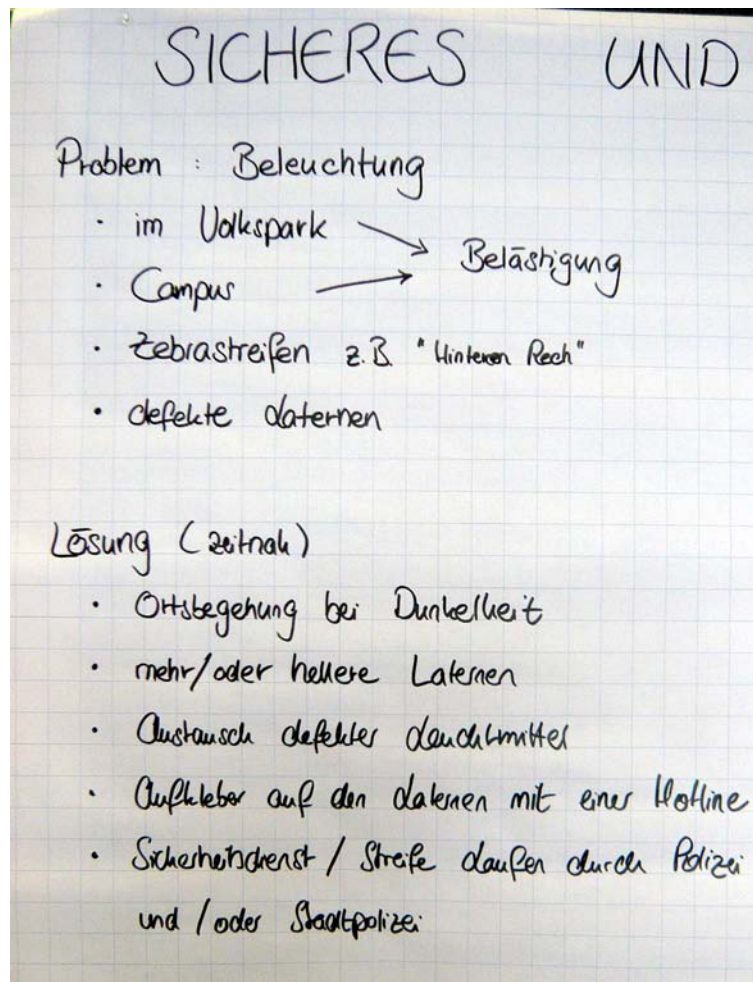 SICHERES UND
Problem : Beleuchtung
· im Volkspark
Belästigung
· Campus
· Zebrastreifen z.B. "Hinteren Rech"
· defekte Laternen
Lösung (zeitnah)
· Ortsbegehung bei Dunkelheit
· mehr/oder hellere Laternen
· Austausch defekter Leuchtmittel
· Aufkleber auf den Laternen mit einer Hotline
· Sicherheitsdienst / Streife Laufen durch Polizei
und / oder Stadtpolizei